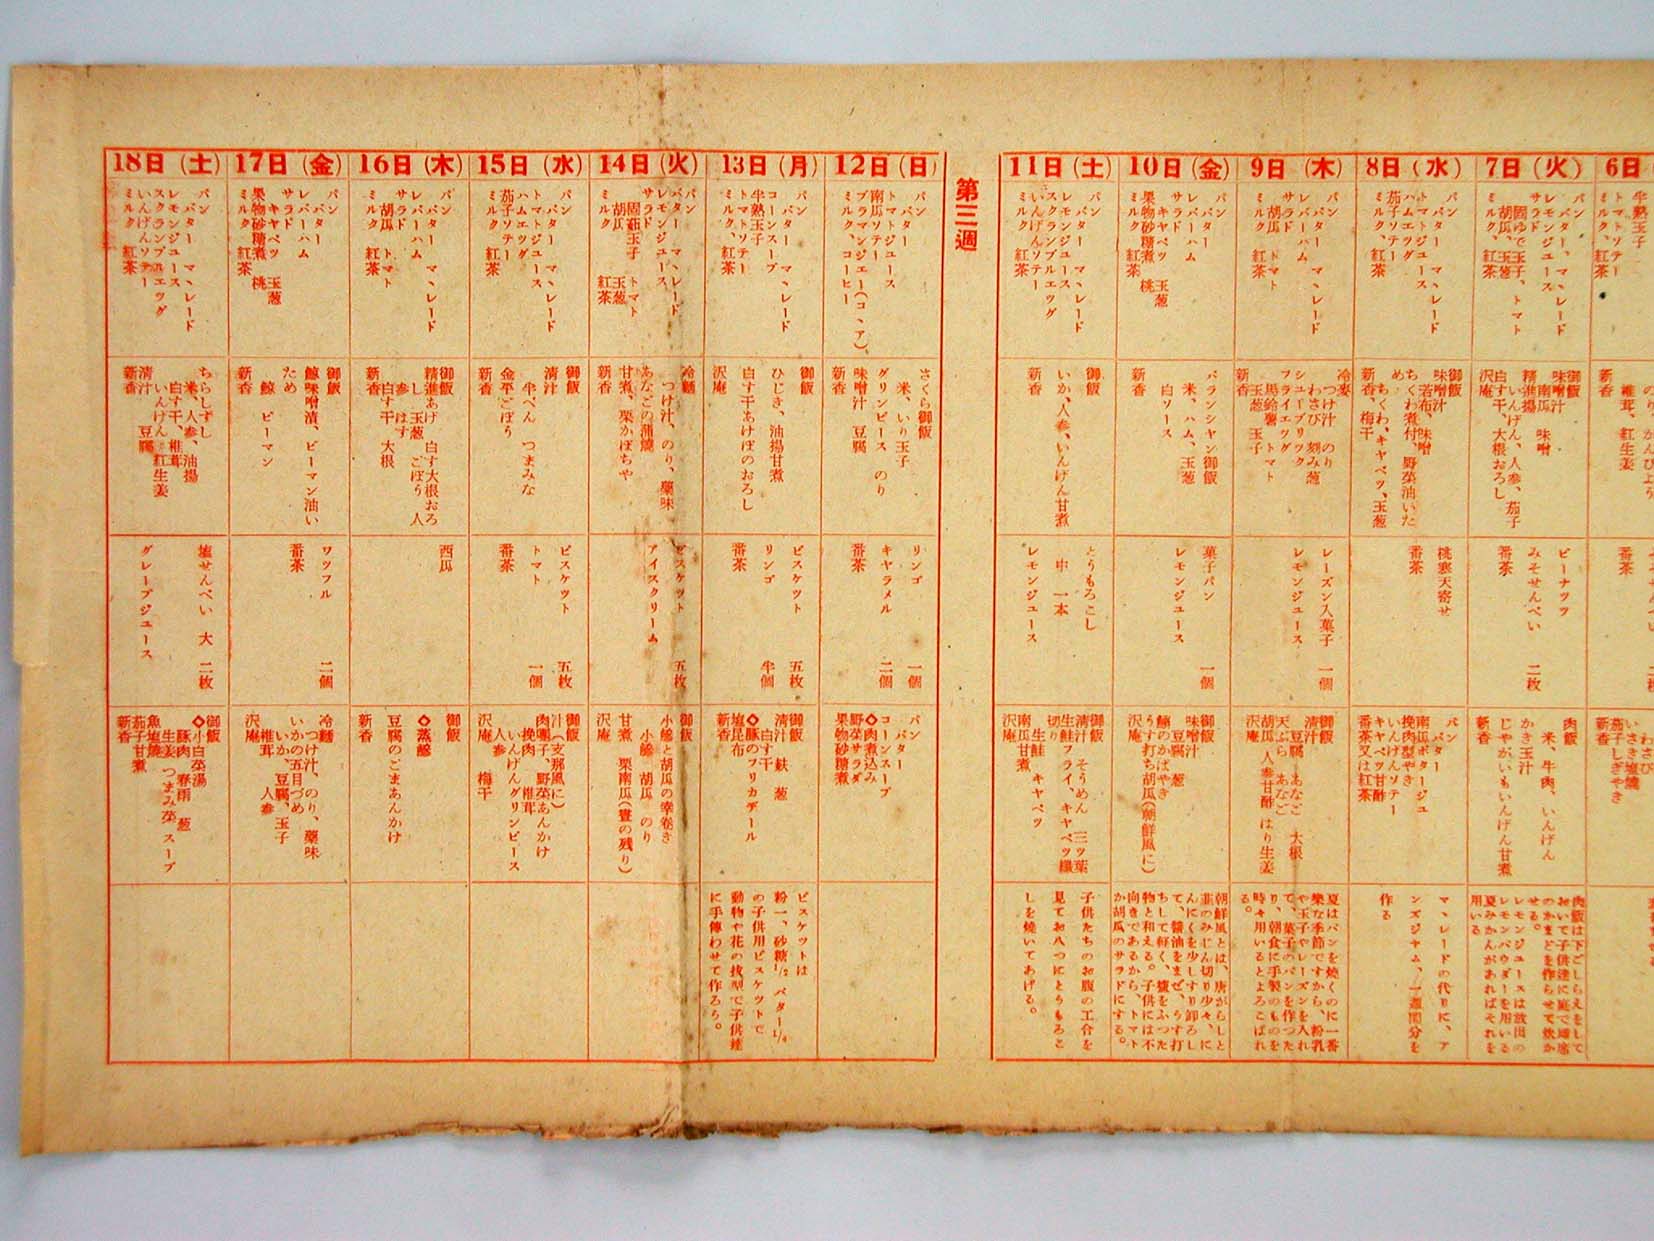 6日
半熟玉子
トマトソテー
ミルク、紅茶
新香
椎茸、紅生姜
番茶
いさき塩焼
茄子しぎやき
新香
7日(火)
パン
バター、マヽレード
レモンジュース
サラド
固ゆで玉子、トマト
胡瓜、玉葱
ミルク、紅茶
御飯
味噌汁
南瓜 味噌
精進揚
いんげん、人参、茄子
白す干、大根おろし
沢庵
ピーナツツ
みそせんべい 二枚
番茶
肉飯
米、牛肉、いんげん
かき玉汁
じやがいもいんげん甘煮
新香
肉飯は下ごしらえをして
おいて子供達に庭で場席
のかまどを作らせて炊か
せる。
レモンジュースは放出の
レモンパウダーを用いる
夏みかんがあればそれを
用いる
8日(水)
パン
バター マヽレード
トマトジュース
ハムエッグ
茄子ソテー
ミルク 紅茶
御飯
味噌汁
若布、味噌
ちくわ煮付、野菜油いた
め
ちくわ、キャベツ、玉葱
新香、梅干
桃寒天寄せ
番茶
パン
バター
南瓜ポタージュ
挽肉型やき
いんげんソテー
キャベツ甘酢
番茶又は紅茶
マヽレードの代りに、ア
ンズジャム、一週間分を
作る
9日(木)
パン
バター マヽレード
レバーハム
サラド
胡瓜 トマト
ミルク 紅茶
冷麦
つけ汁 のり
わさび 刻み葱
シューブリック
フライエッグ
馬鈴薯 トマト
玉葱 玉子
新香
レーズン入菓子 一個
レモンジュース
御飯
清汁
豆腐 あなご 大根
天ぷら あなご
胡瓜 人参甘酢 はり生姜
沢庵
夏はパンを焼くのに一番
樂な季節ですから、粉乳
や玉子やレーズンを入れ
て、菓子のパンを作つた
り、朝食に手製のものを
時々用いるとよろこばれ
る。
10日(金)
パン
バター
レバーハム
サラド
キャベツ 玉葱
果物砂糖煮 桃
ミルク 紅茶
バランシャン御飯
米、ハム、玉葱
白ソース
新香
菓子パン 一個
レモンジュース
御飯
味噌汁
豆腐 葱
鯵のかばやき
うす打ち胡瓜(朝鮮風に)
沢庵
朝鮮風とは、唐がらしと
韮のみじん切り少々、に
んにくを少しすり卸ろし
て、醤油をまぜ、うす打
ちして軽く、塩をふつた
物と和える。子供には不
向きであるから、トマト
か胡瓜のサラドにする。
11日(土)
パン
バター マヽレード
レモンジュース
スクランブルエッグ
いんげんソテー
ミルク 紅茶
御飯
いか、人参、いんげん甘煮
新香
とうもろこし
中 一本
レモンジュース
御飯
清汁 そうめん 三ツ葉
生鮭フライ、キャベツ繊
切り
生鮭 キャベツ
南瓜甘煮
沢庵
子供たちのお腹の工合を
見てお八つにとうもろこ
しを焼いてあげる。
第三週
12日(日)
パン
バター
トマトジュース
南瓜ソテー
ブラマンジェー(コヽア)
ミルク、コーヒー
さくら御飯
米、いり玉子
グリンピース のり
味噌汁 豆腐
新香
リンゴ 一個
キャラメル 二個
番茶
パン
バター
コーンスープ
◇肉煮込み
野菜サラダ
果物砂糖煮
13日(月)
パン
バター マヽレード
コーンスープ
半熟玉子
トマトソテー
ミルク、紅茶
御飯
ひじき、油揚甘煮
白す干あけぼのおろし
沢庵
ビスケツト 五枚
リンゴ 半個
番茶
御飯
清汁 麩 葱
白す干
◇豚のフリカデール
塩昆布
新香
ビスケツトは
粉一、砂糖1/2 バタ-1/4
の子供用ビスケツトで
動物や花の抜型で子供達
に手傳わせて作ろう。
14日(火)
パン
バター マヽレード
レモンジュース
サラド
固茹玉子 トマト
胡瓜 玉葱
ミルク 紅茶
冷麺
つけ汁、のり、薬味
あなごの蒲焼
甘煮、栗かぼちや
新香
ビスケット 五枚
アイスクリーム
御飯
小鯵と胡瓜の幸巻き
小鯵 胡瓜 のり
甘煮 栗南瓜(晝の残り)
沢庵
15日(水)
パン
バター マヽレード
トマトジュース
ハムエッグ
茄子ソテー
ミルク 紅茶
御飯
清汁
半ぺん つまみな
金平ごぼう
新香
ビスケット 五枚
トマト 一個
番茶
御飯
汁(支那風に)
肉團子、野菜あんかけ
挽肉 椎茸
いんげんグリンピース
人参
沢庵 梅干
16日(木)
パン
バター マヽレード
レバーハム
サラド
胡瓜 トマト
ミルク 紅茶
御飯
精進あげ 白す大根おろ
し 玉葱 ごぼう 人
参 はす
白す干 大根
新香
西瓜
御飯
◇蒸鯵
豆腐のごまあんかけ
新香
17日(金)
パン
バター
レバーハム
サラド
キャベツ 玉葱
果物砂糖煮 桃
ミルク 紅茶
御飯
鯨味噌漬、ピーマン油い
ため
鯨 ピーマン
新香
ワッフル 二個
番茶
冷麺
つけ汁、のり、薬味
いかの五目づめ
いか、豆腐、玉子
椎茸 人参
沢庵
18日(土)
パン
バター マヽレード
レモンジュース
スクランブルエッグ
いんげんソテー
ミルク 紅茶
ちらしずし
米、人参、油揚
白す干、椎茸
いんげん 紅生姜
清汁 豆腐
新香
塩せんべい 大 二枚
グレープジュース
御飯
◇小白菜湯
豚肉 春雨 葱
生姜 つまみ菜 スープ
魚塩焼
茄子甘煮
新香